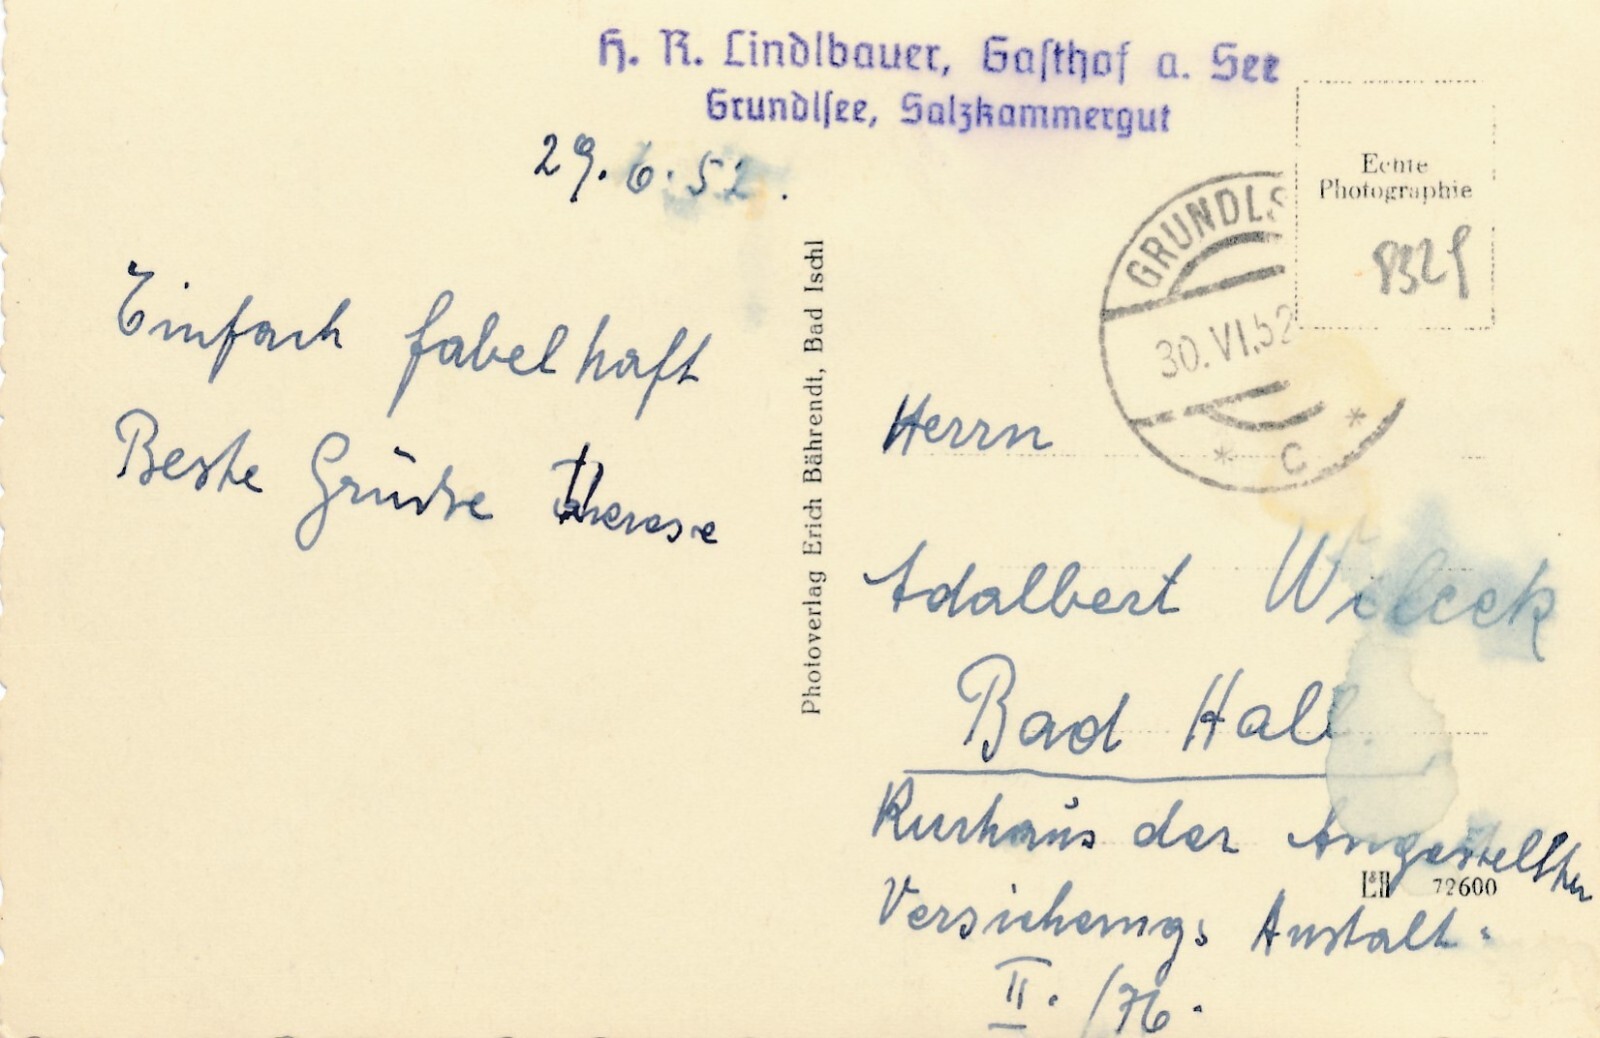 H. R. Lindlbauer, Gasthof a. See
Grundlsee, Salzkammergut
29. 6. 52.
Einfach fabelhaft
Beste Grüsse Therese
Photoverlag Erich Bährendt, Bad Ischl
Echte
Photographie
8329
GRUNDLS
30.VI.52
* C *
Herrn
Adalbert
Bad Hall
Kurhaus der Angestellten
Versicherungs Anstalt.
II. /76.
L&H 72600